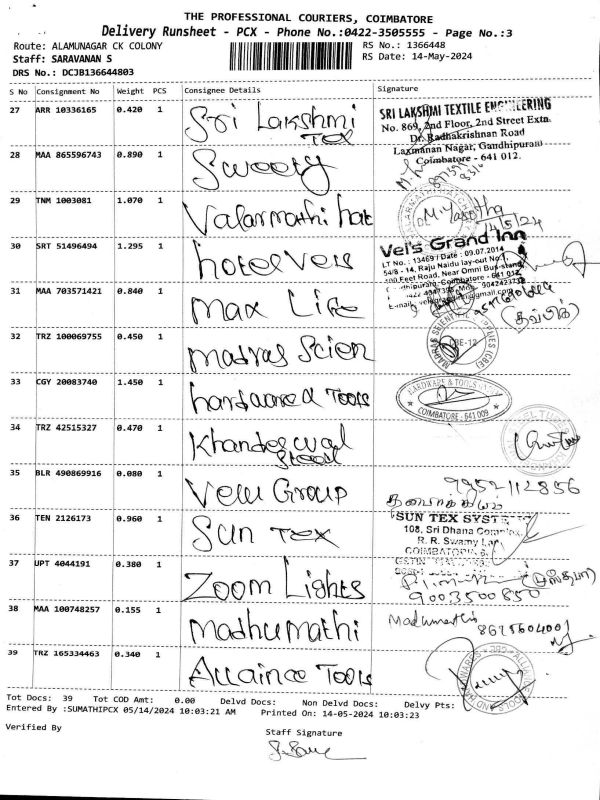 THE PROFESSIONAL COURIERS, COIMBATORE
Delivery Runsheet - PCX - Phone No.:0422-3505555 - Page No.:3
Route: ALAMUNAGAR CK COLONY RS No.: 1366448
Staff: SARAVANAN S RS Date: 14-May-2024
DRS No.: DCJB136644803
S No Consignment No Weight PCS Consignee Details Signature
27 ARR 10336165 0.420 1 Sri Lakshmi Tex
SRI LAKSHMI TEXTILE ENGINEERING
No. 869, 2nd Floor, 2nd Street Extn.
Dr. Radhakrishnan Road
Laxmanan Nagar, Gandhipuram
Coimbatore - 641 012.
28 MAA 865596743 0.890 1
29 TNM 1003081 1.070 1 Valarmathi hat
14/5/24
30 SRT 51496494 1.295 1 hotel Vels
Vel's Grand Inn
LT No. : 13469 / Date : 09.07.2014
54/8 - 14, Raju Naidu lay-out No.1
100 Feet Road, Near Omni Bus-stand
Coimbatore - 641 012
31 MAA 703571421 0.840 1 Max Life
32 TRZ 100069755 0.450 1 Madras Scien
33 CGY 20083740 1.450 1 hardwared Tools
HARDWARE & TOOLS
COIMBATORE - 641 009
34 TRZ 42515327 0.470 1 Khandeswal Steel
35 BLR 490869916 0.080 1 Velu Group
9952112856
36 TEN 2126173 0.960 1 Sun Tex
SUN TEX SYSTE
108, Sri Dhana Complex,
R. R. Swamy
37 UPT 4044191 0.380 1 Zoom Lights
9003500850
38 MAA 100748257 0.155 1 Madhumathi
39 TRZ 165334463 0.340 1 Allaince Tools
Tot Docs: 39 Tot COD Amt: 0.00 Delvd Docs: Non Delvd Docs: Delvy Pts:
Entered By :SUMATHIPCX 05/14/2024 10:03:21 AM Printed On: 14-05-2024 10:03:23
Verified By Staff Signature